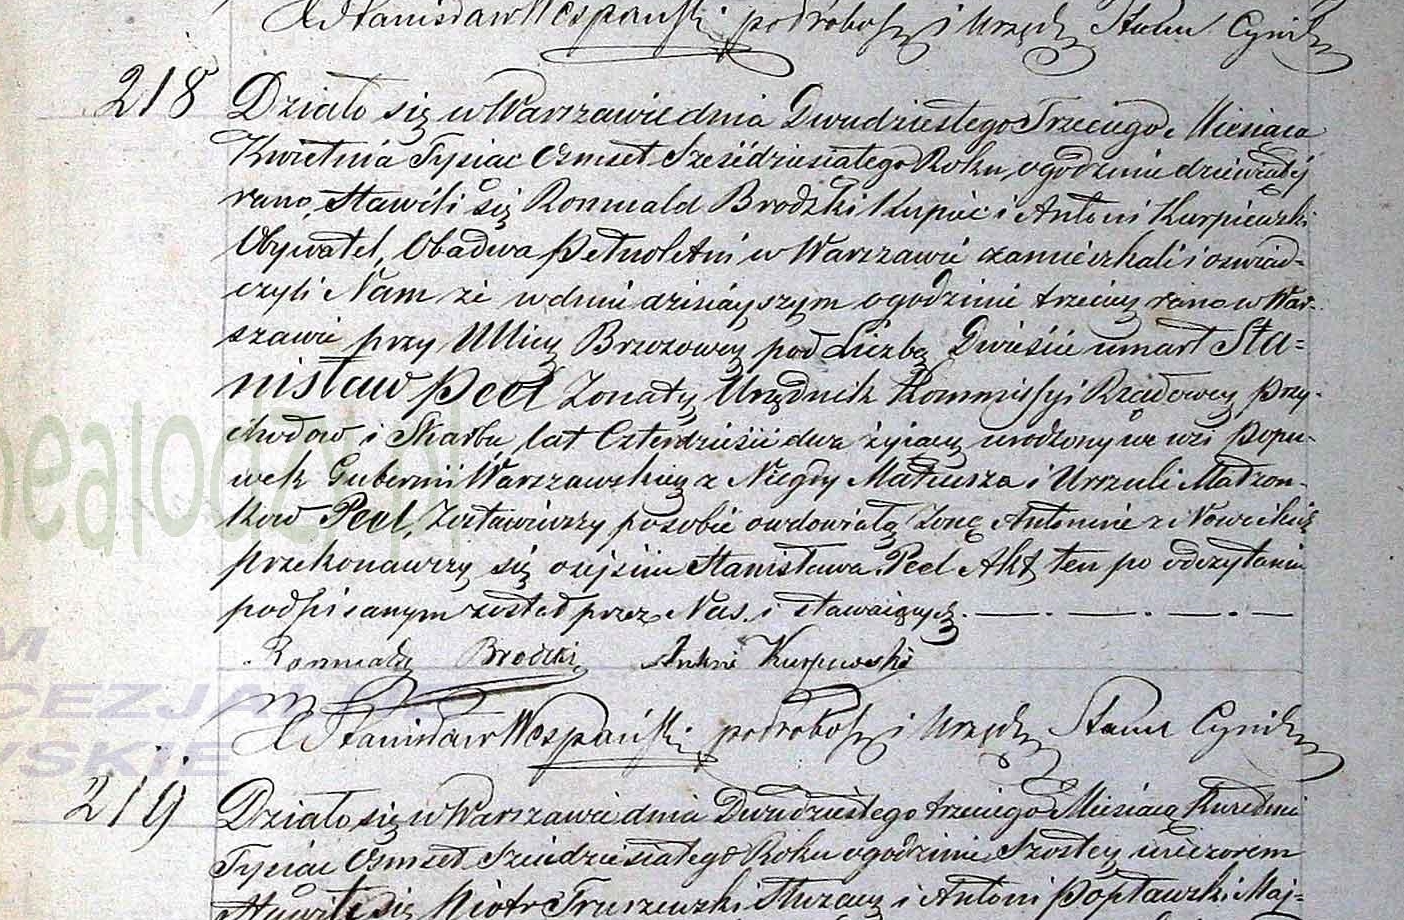 X Stanisław Wespański podrobosz i Urzędk Stanu Cywiln
218 Działo się w Warszawie dnia Dwudziestego Trzeciego Miesiąca
Kwietnia Tysiąc Osmset Sześćdziesiatego Roku, ogodzinie dziewiątej
rano, Stawili się Romuald Brodzki Kupiec i Antoni Kurpiewski
Obywatel, Obadwa pełnoletni w Warszawie zamieszkali i oswiad-
czyli Nam że w dniu dzisiayszym ogodzinie trzeciey rano w War-
szawie przy Ulicy Brzozowey pod Liczbą Dwieście umarł Sta-
nisław Pecl Zonaty Urzędnik Kommissyi Rządowey Przy-
chodow i Skarbu, lat Czterdzieści dwa życia urodzony we wsi
wek Gubernii Warszawskiey z Niegdy Mateusza i Urszuli Małżon-
kow Pecl, Zostawiwszy po sobie owdowiałą Zonę Antoninę z Nowickich
przekonawszy się o zejściu Stanisława Pecl Akt ten po odczytaniu
podpisanym został przez Nas i stawaiących. — . — . — . —
Romuald Brodzki Antoni Kurpiewski
X Stanisław Wespański podrobosz i Urzędk Stanu Cywiln
219 Działo się w Warszawie dnia Dwudziestego trzeciego Miesiąca Kwietnia
Tysiąc Osmset Sześćdziesiatego Roku ogodzinie Szostey wieczorem
Stawili się Piotr Truszewski i Antoni Popławski Maj-
nealodzy.pl